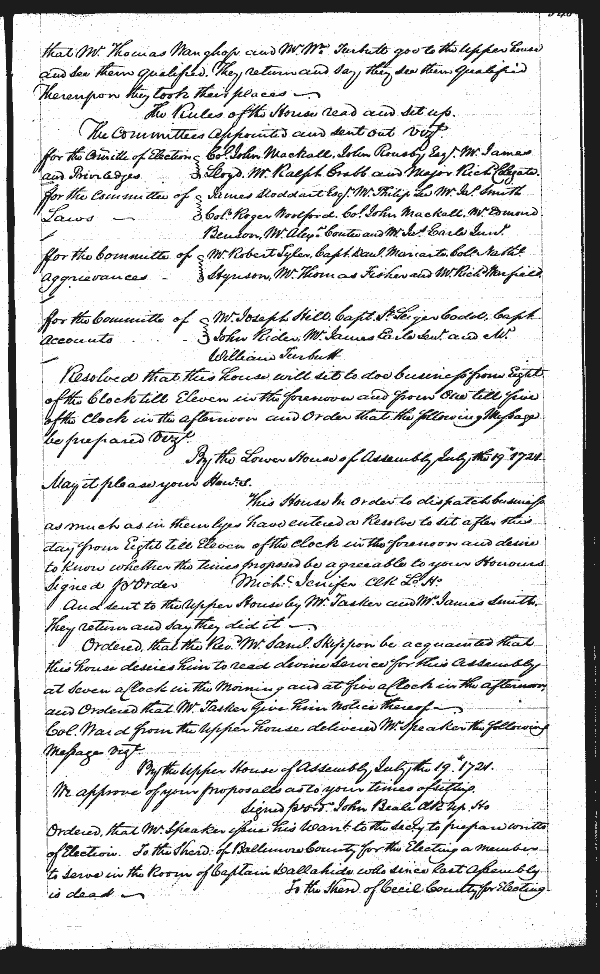 that Mr. Thomas Vanghop and Mr. Wm. Turbutt goe to the upper house
and see them qualified. They return and say they see them qualified
Thereupon they took their places
The Rules of the House read and set up.
The Committees Appointed and sent out vizt.
for the Comitte of Election Col. John Mackall, John Rousby Esqr. Mr. James
and Priviledges Lloyd, Mr. Ralph Crabb and Major Richd.
for the Committee of James Stoddart Esqr. Mr. Philip Lee Mr. Jos. Smith
Laws Col. Roger Woolford, Col. John Mackall, Mr. Edmond
Benson, Mr. Alexr. Contee and Mr. Jas. Earle Junr.
for the Committee of Mr. Robert Tyler, Capt. Danl. Mariarte, Col. Nathl.
aggrievances Hynson, Mr. Thomas Fisher and Mr. Richd. Warfield
for the Committee of Mr. Joseph Hill, Capt. St. Leiger Codd, Capt.
accounts John Rider, Mr. James Earle Senr. and Mr.
William Turbutt
Resolved that this house will sit to doe business from Eight
of the Clock till Eleven in the forenoon and from One till five
of the Clock in the afternoon and Order that the following Message
be prepared vizt.
By the Lower House of Assembly July the 19th 1721.
May it please your Honrs.
This House In Order to dispatch business
as much as in them lyes have entered a Resolve to sit after this
day from Eight till Eleven of the Clock in the forenoon and desire
to know whether the times proposed be agreeable to your Honours
Signed p Order Michl. Jenifer Clk Lo. Ho.
And sent to the upper House by Mr. Tasker and Mr. James Smith.
They return and say they did it
Ordered, that the Revd. Mr. Saml. Skippon be acquainted that
this house desires him to read devine service for this Assembly
at seven a Clock in the Morning and at five a Clock in the afternoon,
and Ordered that Mr. Tasker Give him notice thereof
Col. Ward from the upper house delivered Mr. Speaker the following
Message vizt.
By the Upper House of Assembly July the 19th 1721.
We approve of your proposalls as to your times of sitting
Signed p Ordr. John Beale Clk up. Ho
Ordered, that Mr. Speaker issue his Warrt. to the secry to prepare writts
of Election. To the Sherd. of Baltimore County for the Electing a member
to serve in the Room of Captain Dallahide who since last Assembly
is dead To the Sherd of Cecil County for Electing